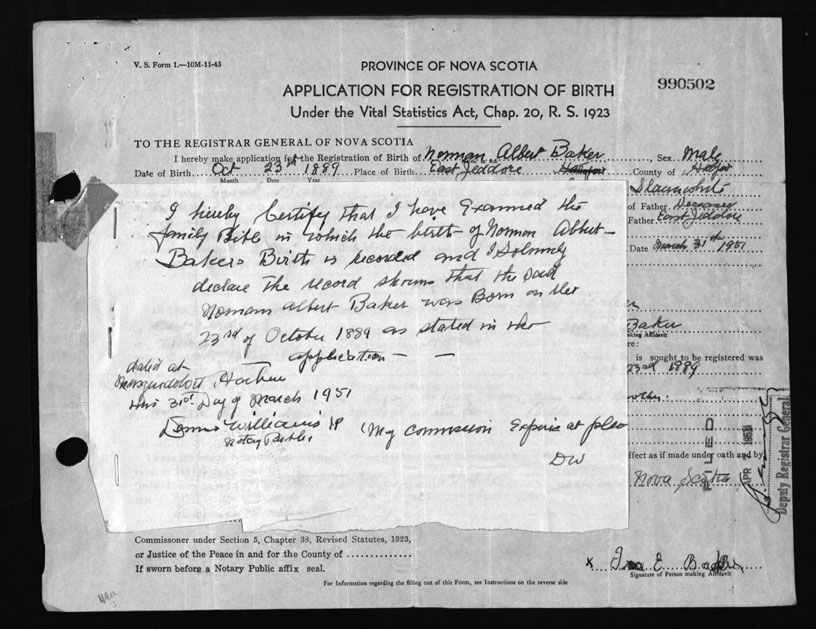 V. S. Form 1.—10M-11-43
PROVINCE OF NOVA SCOTIA
APPLICATION FOR REGISTRATION OF BIRTH
990502
Under the Vital Statistics Act, Chap. 20, R. S. 1923
TO THE REGISTRAR GENERAL OF NOVA SCOTIA
I hereby make application for the Registration of Birth of Norman Albert Baker, Sex Male
Date of Birth Oct 23rd 1889 Place of Birth East Jeddore County of Halifax
Month Date Year
of Father Deceased
Father East Jeddore
Date March 31st 1951
I hereby Certify that I have Examined the
family Bible in which the birth of Norman Albert
Bakers Birth is recorded and I Solemnly
declare the record shows that the said
Norman Albert Baker was Born on the
23rd of October 1889 as stated in the
application
dated at
Musquodoboit Harbour
this 31st Day of March 1951
Dennis Williams JP
Notary Public
My commission Expires at pleas
DW
Baker
king Affidavit
re:
is sought to be registered was
23rd 1889
brother
ffect as if made under oath and by
Nova Scotia
FILED
APR 7 1951
Deputy Registrar General
Commissioner under Section 5, Chapter 38, Revised Statutes, 1923,
or Justice of the Peace in and for the County of
If sworn before a Notary Public affix seal.
x Ina E Baker
Signature of Person making Affidavit
For Information regarding the filling out of this Form, see Instructions on the reverse side